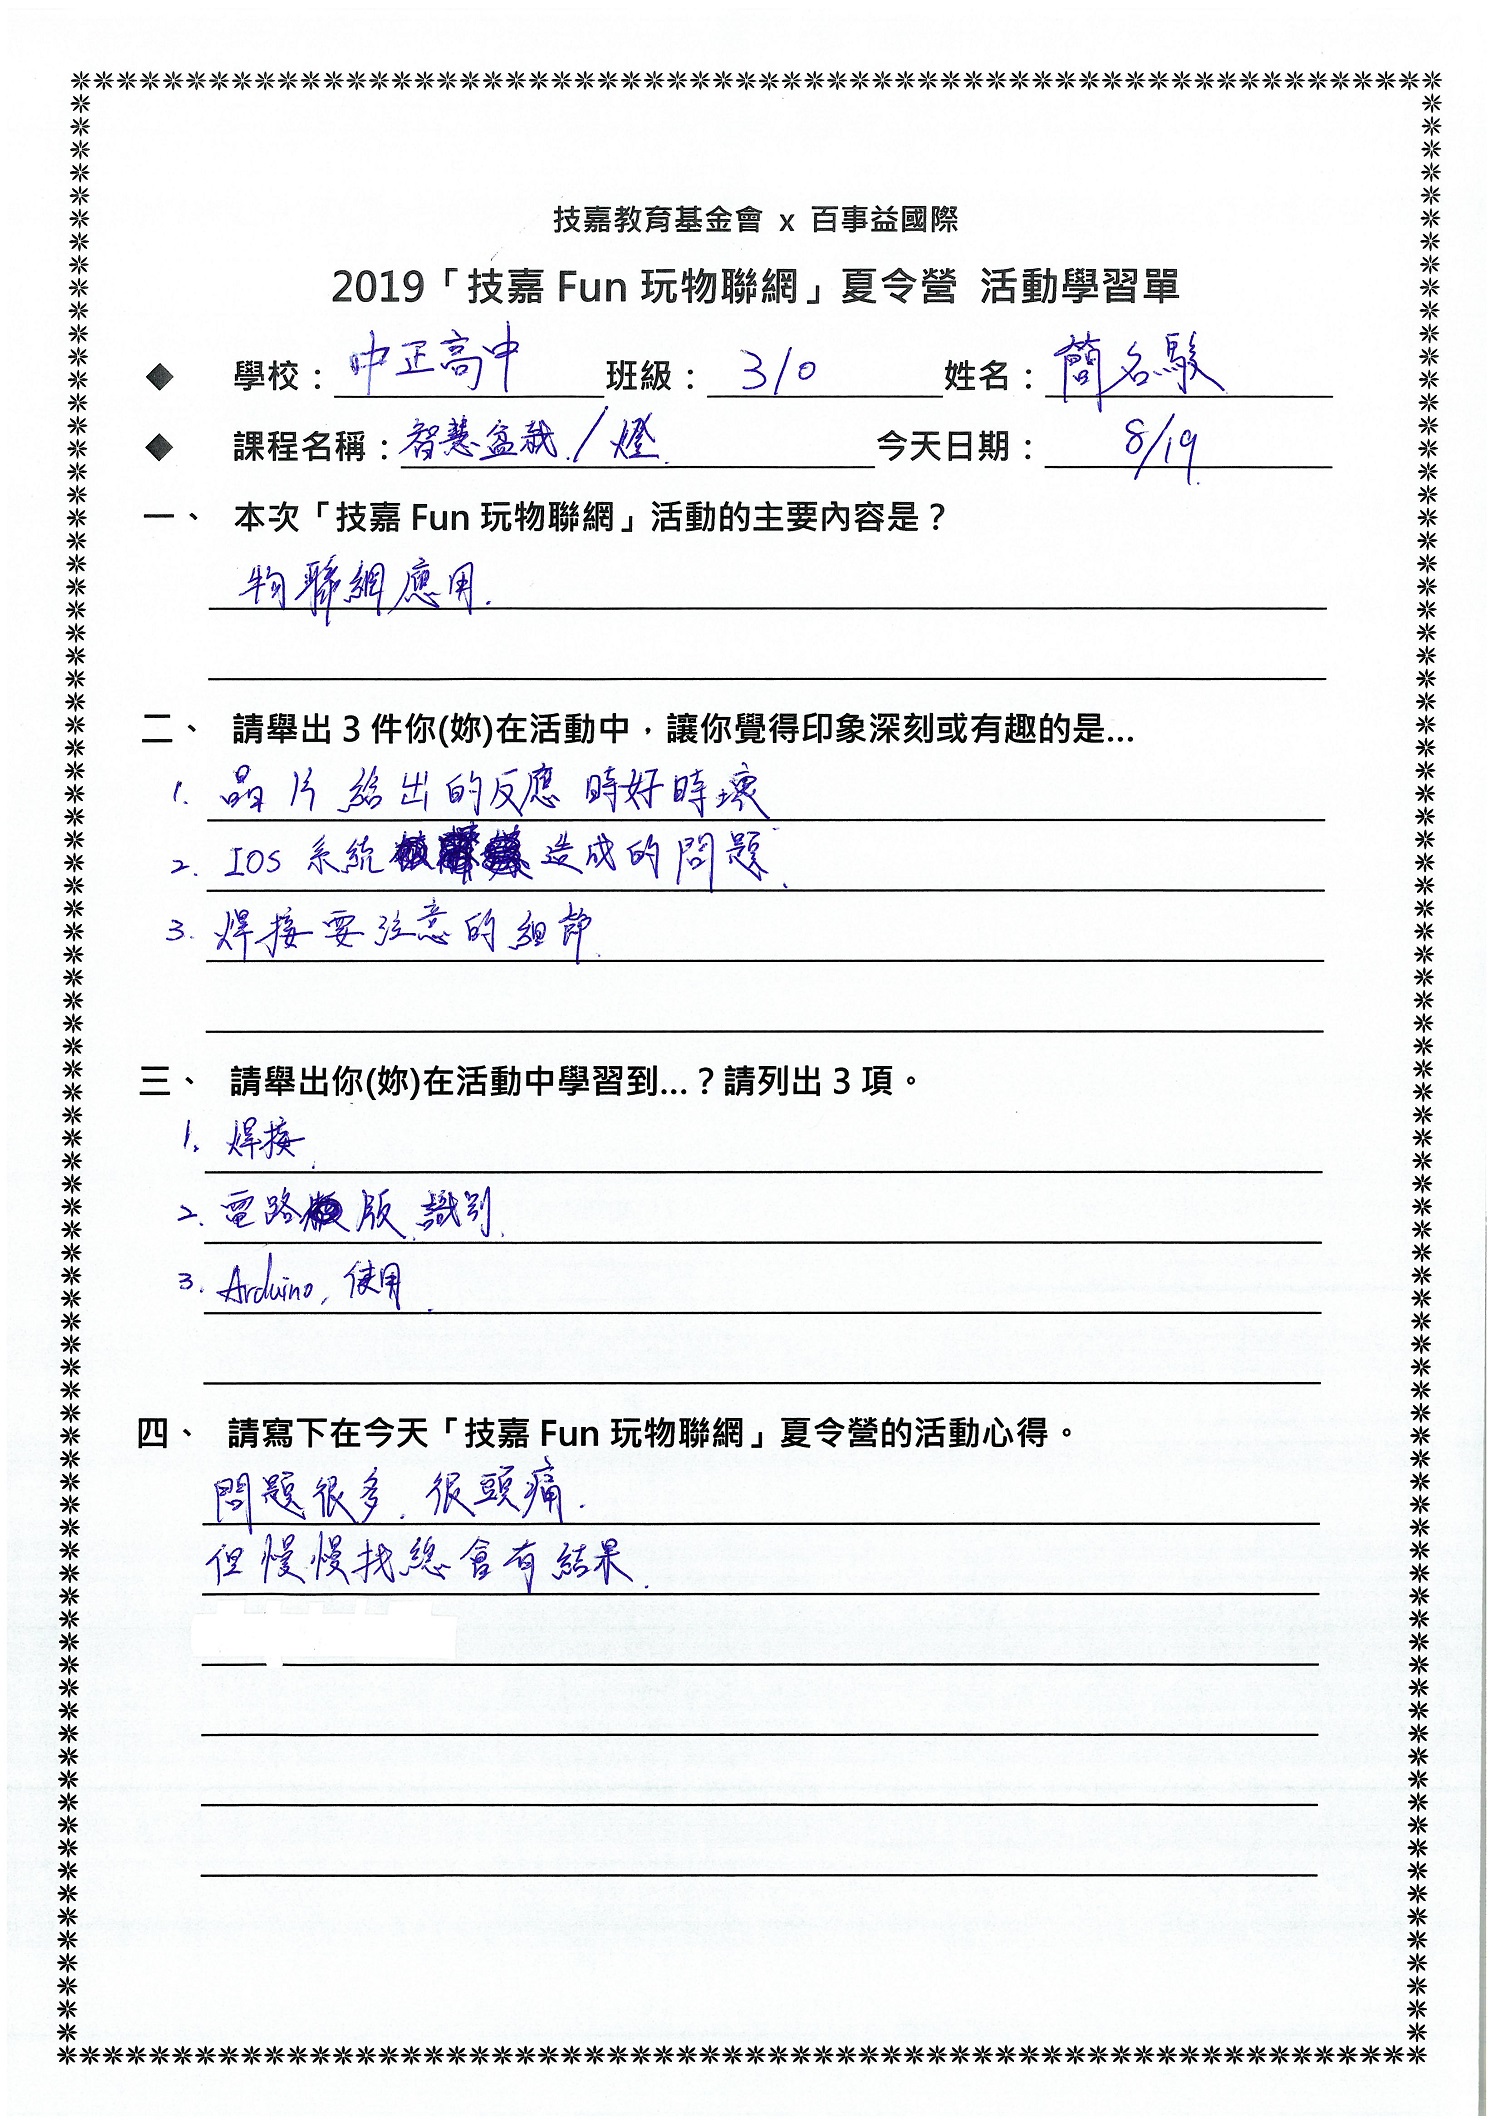 技嘉教育基金會 x 百事益國際
2019「技嘉 Fun 玩物聯網」夏令營 活動學習單
◆ 學校：中正高中 班級：310 姓名：簡名駿
◆ 課程名稱：智慧盆栽/燈 今天日期：8/19
一、 本次「技嘉 Fun 玩物聯網」活動的主要內容是？
物聯網應用.
二、 請舉出 3 件你(妳)在活動中，讓你覺得印象深刻或有趣的是…
1. 晶片給出的反應時好時壞
2. IOS 系統造成的問題.
3. 焊接要注意的細節.
三、 請舉出你(妳)在活動中學習到…？請列出 3 項。
1. 焊接.
2. 電路版識別.
3. Arduino, 使用.
四、 請寫下在今天「技嘉 Fun 玩物聯網」夏令營的活動心得。
問題很多,很頭痛.
但慢慢找總會有結果.